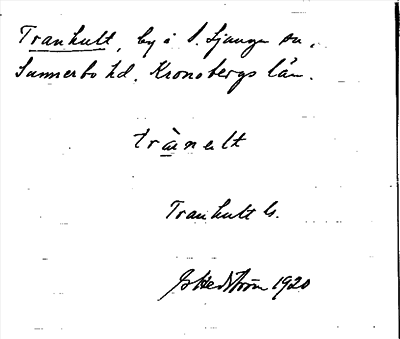 Tranhult, by i S. Ljunga sn,
Sunnerbo hd, Kronobergs län.
trànelt
Tranhult G.
G Hedström 1920